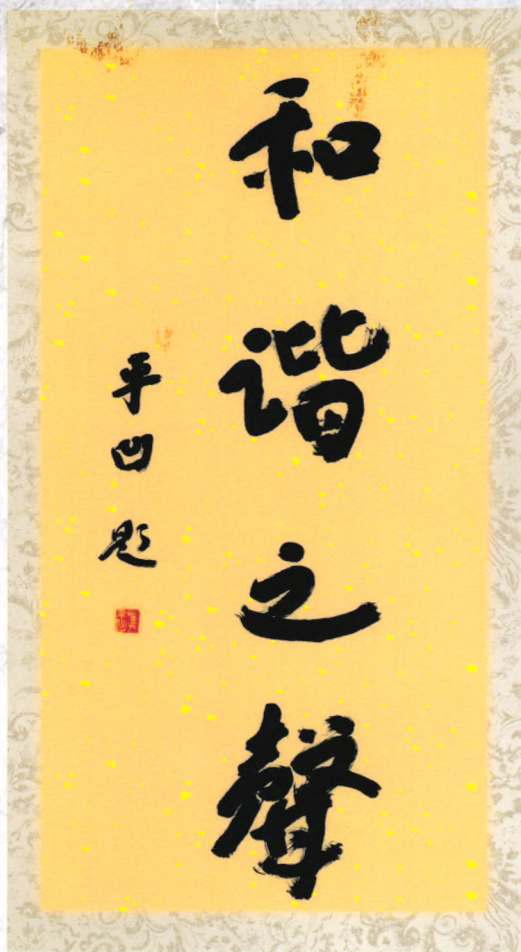 和谐之聲
平凹题